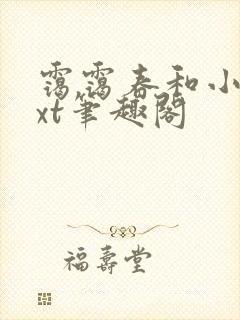 霭霭春和小
xt笔趣阁
福壽堂